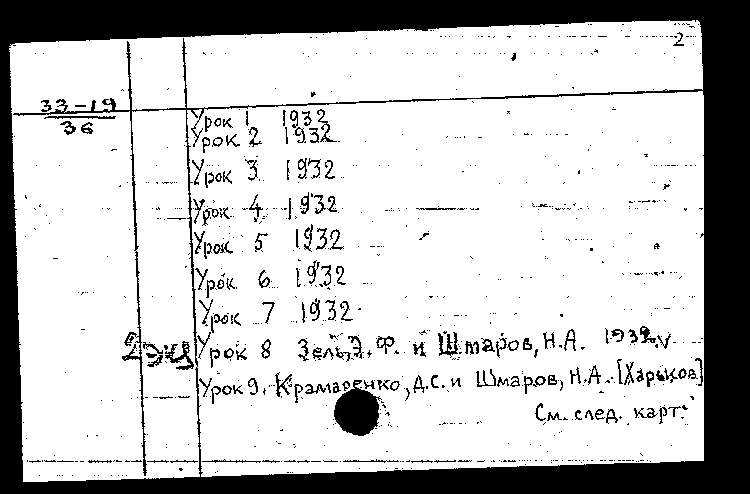 2
33-19
36
Урок 1 1932
Урок 2 1932
Урок 3 1932
Урок 4 1932
Урок 5 1932
Урок 6 1932
Урок 7 1932
2 экз Урок 8 Зель, Э. Ф. и Штаров, Н.А. 1932. V
Урок 9. Крамаренко, Д.С. и Шмаров, Н.А. [Харьков]
См. след. карт.